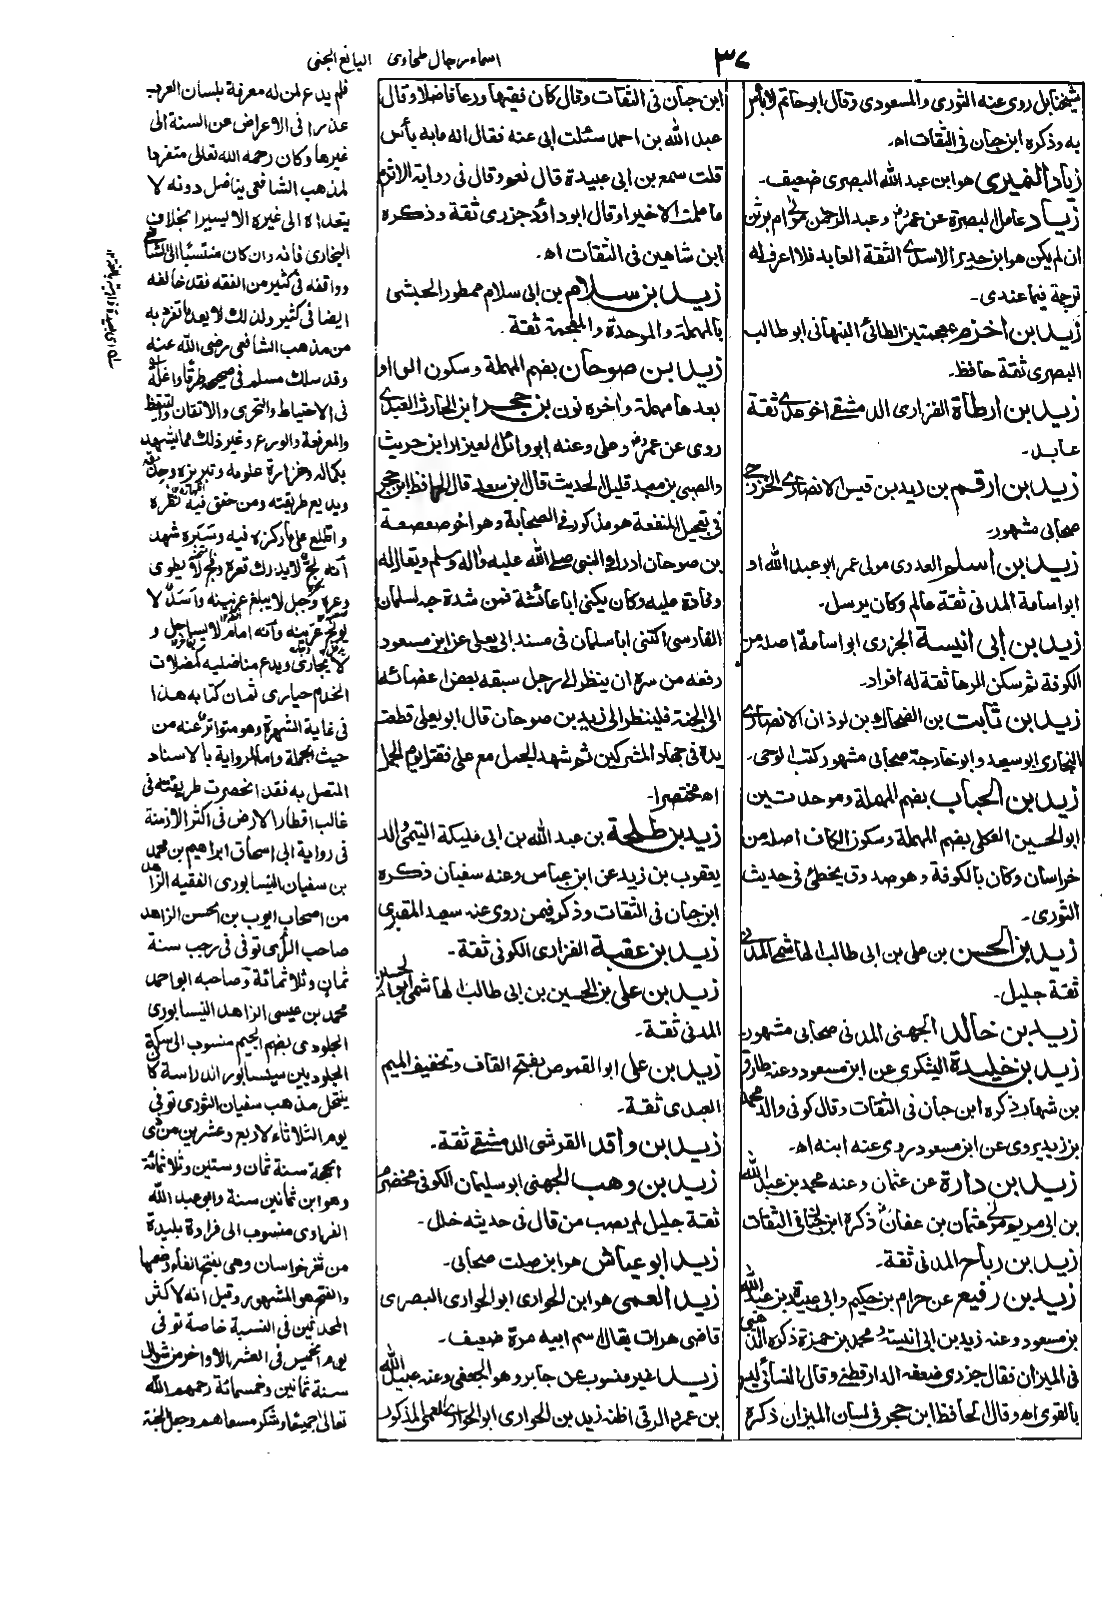 ٣٧
اسماء رجال طحاوی اليانع الجنی
شيخنا بل روى عنه الثورى والمسعودى وقال ابو حاتم لا بأس
به وذكره ابن حبان فى الثقات اه۔
زياد النميرى هو ابن عبد الله البصرى ضعيف۔
زياد عامل البصرة عن عمر وعبد الرحمن مولى ام برثن
ان لم يكن هو ابن حدير الاسدى الثقة العابد فلا اعرف له
ترجمة فيما عندى۔
زيد بن اخزم بمعجمتين الطائى النبهانى ابو طالب
البصرى ثقة حافظ۔
زيد بن ارطاة الفزارى الدمشقى اخو عدى ثقة
عابد۔
زيد بن ارقم بن زيد بن قيس الانصارى الخزرجى
صحابى مشهور۔
زيد بن اسلم العدوى مولى عمر ابو عبد الله او
ابو اسامة المدنى ثقة عالم وكان يرسل۔
زيد بن ابى انيسة الجزرى ابو اسامة اصله من
الكوفة ثم سكن الرها ثقة له افراد۔
زيد بن ثابت بن الضحاك بن لوذان الانصارى
النجارى ابو سعيد وابو خارجة صحابى مشهور كتب الوحى۔
زيد بن الحباب بضم المهملة وموحدتين
ابو الحسين العكلى بضم المهملة وسكون الكاف اصله من
خراسان وكان بالكوفة وهو صدوق يخطئ فى حديث
الثورى۔
زيد بن الحسن بن على بن ابى طالب الهاشمى المدنى
ثقة جليل۔
زيد بن خالد الجهنى المدنى صحابى مشهور۔
زيد بن خليدة اليشكرى عن ابن مسعود وعنه طارق
بن شهاب ذكره ابن حبان فى الثقات وقال كوفى والد محمد
بن زيد يروى عن ابن مسعود روى عنه ابنه اه۔
زيد بن دارة عن عثمان وعنه محمد بن عبد الله
بن ابى مريم مولى عثمان بن عفان ذكره ابن حبان فى الثقات
زيد بن رباح المدنى ثقة۔
زيد بن رفيع عن حرام بن حكيم وابى عبيدة بن عبد الله
بن مسعود وعنه زيد بن ابى انيسة ومحمد بن حمزة ذكره الذهبى
فى الميزان فقال جزرى ضعفه الدارقطنى وقال النسائى ليس
بالقوى اه وقال الحافظ ابن حجر فى لسان الميزان ذكره
ابن حبان فى الثقات وقال كان فقيها ورعا فاضلا وقال
عبد الله بن احمد سئلت ابى عنه فقال انه ما به بأس
قلت سمع بن ابى عبيدة قال نعم وقال فى رواية الاثرم
ما علمت الا خيرا وقال ابو داؤد جزرى ثقة وذكره
ابن شاهين فى الثقات اه۔
زيد بن سلام بن ابى سلام ممطور الحبشى
بالمهملة والموحدة والمعجمة ثقة۔
زيد بن صوحان بضم المهملة وسكون الواو
بعدها مهملة وآخره نون بن حجر ابن الحارث العبدى
روى عن عمر وعلى وعنه ابو وائل العيزار ابن حريث
والصبى بن معبد قليل الحديث قال ابن سعد قال الحافظ ابن حجر
فى تعجيل المنفعة هو مذكور فى الصحابة وهو اخو صعصعة
بن صوحان ادرك النبى صلى الله عليه وآله وسلم ويقال له
وفادة عليه وكان يكنى ابا عائشة فمن شدة حبه لسلمان
الفارسى اكتنى ابا سلمان فى مسند ابى يعلى عن ابن مسعود
رفعه من سره ان ينظر الى رجل سبقه بعض اعضائه
الى الجنة فلينظر الى زيد بن صوحان قال ابو يعلى قطعت
يده فى جهاد المشركين ثم شهد الجمل مع على فقتل يوم الجمل
اه مختصرا۔
زيد بن طلحة بن عبد الله بن ابى مليكة التيمى والد
يعقوب بن زيد عن ابن عباس وعنه سفيان ذكره
ابن حبان فى الثقات وذكر فيمن روى عنه سعيد المقبرى
زيد بن عقبة الفزارى الكوفى ثقة۔
زيد بن على بن الحسين بن ابى طالب الهاشمى ابو الحسين
المدنى ثقة۔
زيد بن على ابو القموص بفتح القاف وتخفيف الميم
العبدى ثقة۔
زيد بن واقد القرشى الدمشقى ثقة۔
زيد بن وهب الجهنى ابو سليمان الكوفى مخضرم
ثقة جليل لم يصب من قال فى حديثه خلل۔
زيد ابو عياش هو ابن صلت صحابى۔
زيد العمى هو ابن الحوارى ابو الحوارى البصرى
قاضى هرات يقال اسم ابيه مرة ضعيف۔
زيد غير منسوب عن جابر وهو الجعفى وعنه عبيد الله
بن عمرو الرقى اظنه زيد بن الحوارى ابو الحوارى العمى المذكور
فلم يدع لمن له معرفة بلسان العرب
عذرا فى الاعراض عن السنة الى
غيرها وكان رحمه الله تعالى متفرها
لمذهب الشافعى يناضل دونه لا
يتعداه الى غيره الا يسيرا بخلاف
البخارى فانه وان كان منتسبا الى الشافعى
ووافقه فى كثير من الفقه فقد خالفه
ايضا فى كثير ولذلك لا يعد ما تفرد به
من مذهب الشافعى رضى الله عنه
وقد سلك مسلم فى صحيحه طرقا
فى الاحتياط والتحرى والاتقان
والمعرفة والورع وغير ذلك مما يشهد
بكماله وغزارة علومه وتبريزه
وبديع طريقته ومن حقق فيه نظره
واطلع على ما ركزه فيه وسبره شهد
لا يجارى ويدع مناضليه كمعضلات
الخدام حيارى ثم ان كتابه هذا
فى غاية الشهرة وهو متواتر عنه من
حيث الجملة واما الرواية بالاسناد
المتصل به فقد انحصرت طريقته فى
غالب اقطار الارض فى اكثر الازمنة
فى رواية ابى اسحاق ابراهيم بن محمد
بن سفيان النيسابورى الفقيه الزاهد
من اصحاب ايوب بن الحسن الزاهد
صاحب الرأى توفى فى رجب سنة
ثمان وثلاثمائة وصاحبه ابو احمد
محمد بن عيسى الزاهد النيسابورى
الجلودى بضم الجيم منسوب الى سكة
الجلوديين بنيسابور الدراسة كا
ينتحل مذهب سفيان الثورى توفى
يوم الثلاثاء لاربع وعشرين من ذى
الحجة سنة ثمان وستين وثلاثمائة
وهو ابن ثمانين سنة وابو عبد الله
الفراوى منسوب الى فراوة بليدة
من ثغر خراسان وهى بفتح الفاء وضمها
والفتح هو المشهور وقيل انه لاكثر
المحدثين فى النسبة خاصة توفى
يوم الخميس فى العشر الاواخر من شوال
سنة ثمانين وخمسمائة رحمهم الله
تعالى اجمعين وشكر مسعاهم وجعل الجنة